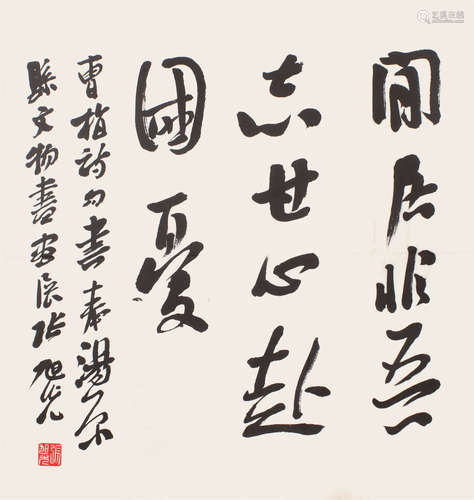 閒居非吾
志甘心赴
國憂
曹植詩句書奉湯原
縣文物書畫展張旭光